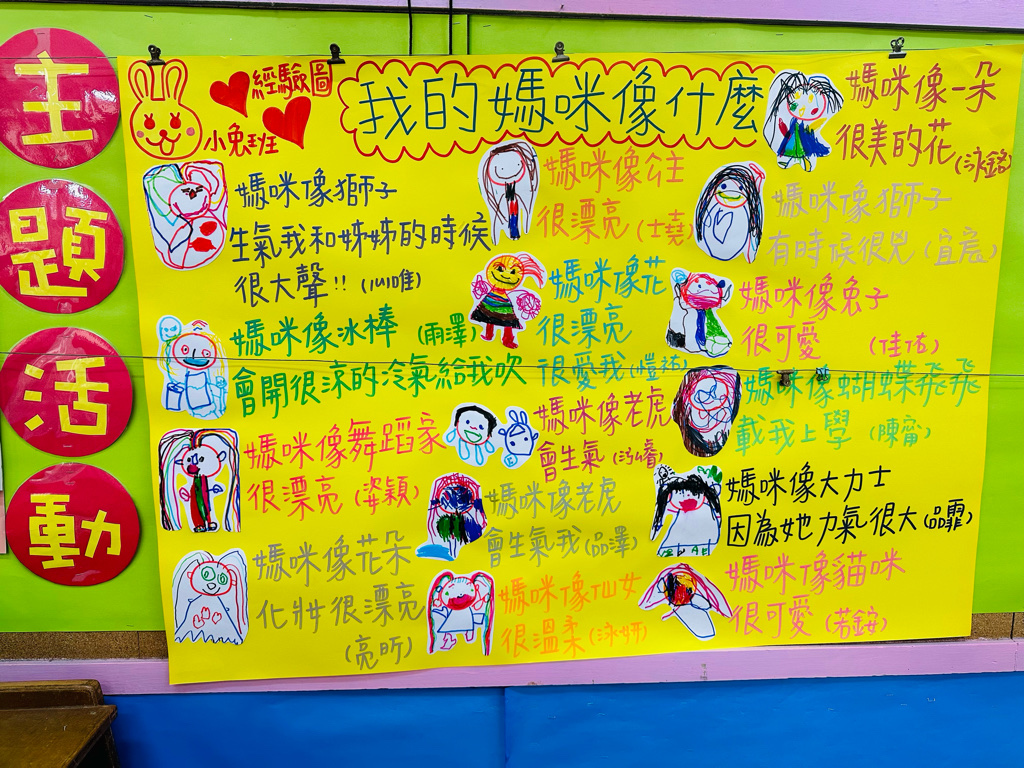 主
題
活
動
經驗圖
小兔班
我的媽咪像什麼
媽咪像一朵
很美的花(泳銘)
媽咪像獅子
生氣我和姊姊的時候
很大聲!!(心唯)
媽咪像公主
很漂亮(士堯)
媽咪像獅子
有時候很兇(宜宸)
媽咪像冰棒(雨澤)
會開很涼的冷氣給我吹
媽咪像花
很漂亮
很愛我(愷祐)
媽咪像兔子
很可愛(佳佑)
媽咪像舞蹈家
很漂亮(姿穎)
媽咪像老虎
會生氣
媽咪像蝴蝶飛飛
載我上學(陳甯)
媽咪像花朵
化妝很漂亮
(亮昕)
媽咪像老虎
會生氣我(品澤)
媽咪像大力士
因為她力氣很大(品霏)
媽咪像仙女
很溫柔(泳妍)
媽咪像貓咪
很可愛(若銨)